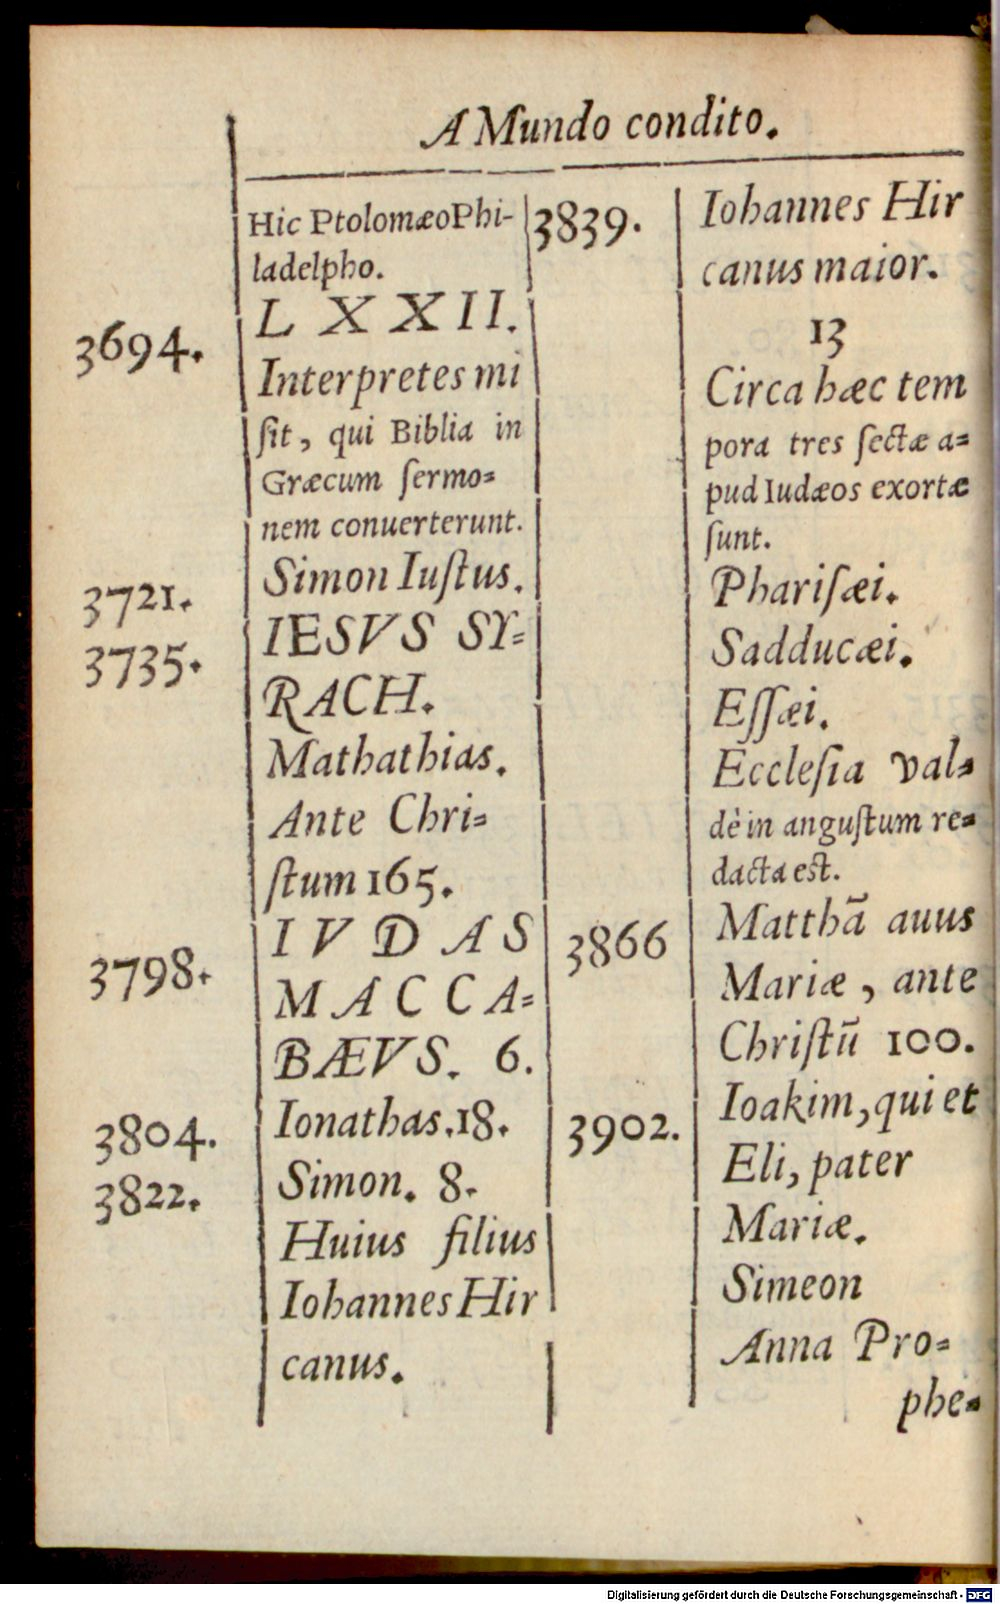 A Mundo condito.
Hic Ptolomæo Phi-
ladelpho.
L X X I I.
3694. Interpretes mi
ſit, qui Biblia in
Græcum ſermo-
nem conuerterunt.
3721. Simon Iuſtus.
3735. IESVS SY-
RACH.
Mathathias.
Ante Chri-
ſtum 165.
I V D A S
3798. M A C C A-
BÆVS. 6.
3804. Ionathas. 18.
3822. Simon. 8.
Huius filius
Iohannes Hir
canus.
3839. Iohannes Hir
canus maior.
13
Circa hæc tem
pora tres ſectæ a-
pud Iudæos exortæ
ſunt.
Phariſæi.
Sadducæi.
Eſſæi.
Eccleſia val-
dè in anguſtum re-
dacta est.
3866 Matthã auus
Mariæ, ante
Chriſtũ 100.
3902. Ioakim, qui et
Eli, pater
Mariæ.
Simeon
Anna Pro-
phe-
Digitalisierung gefördert durch die Deutsche Forschungsgemeinschaft - DFG